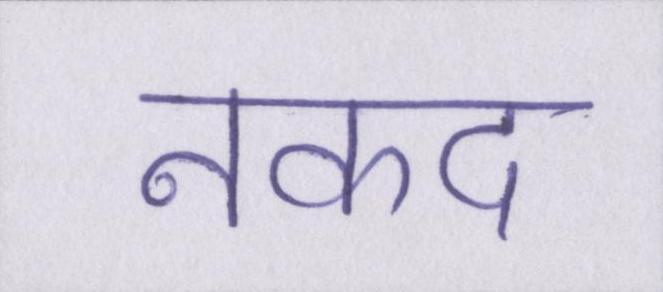 नकद